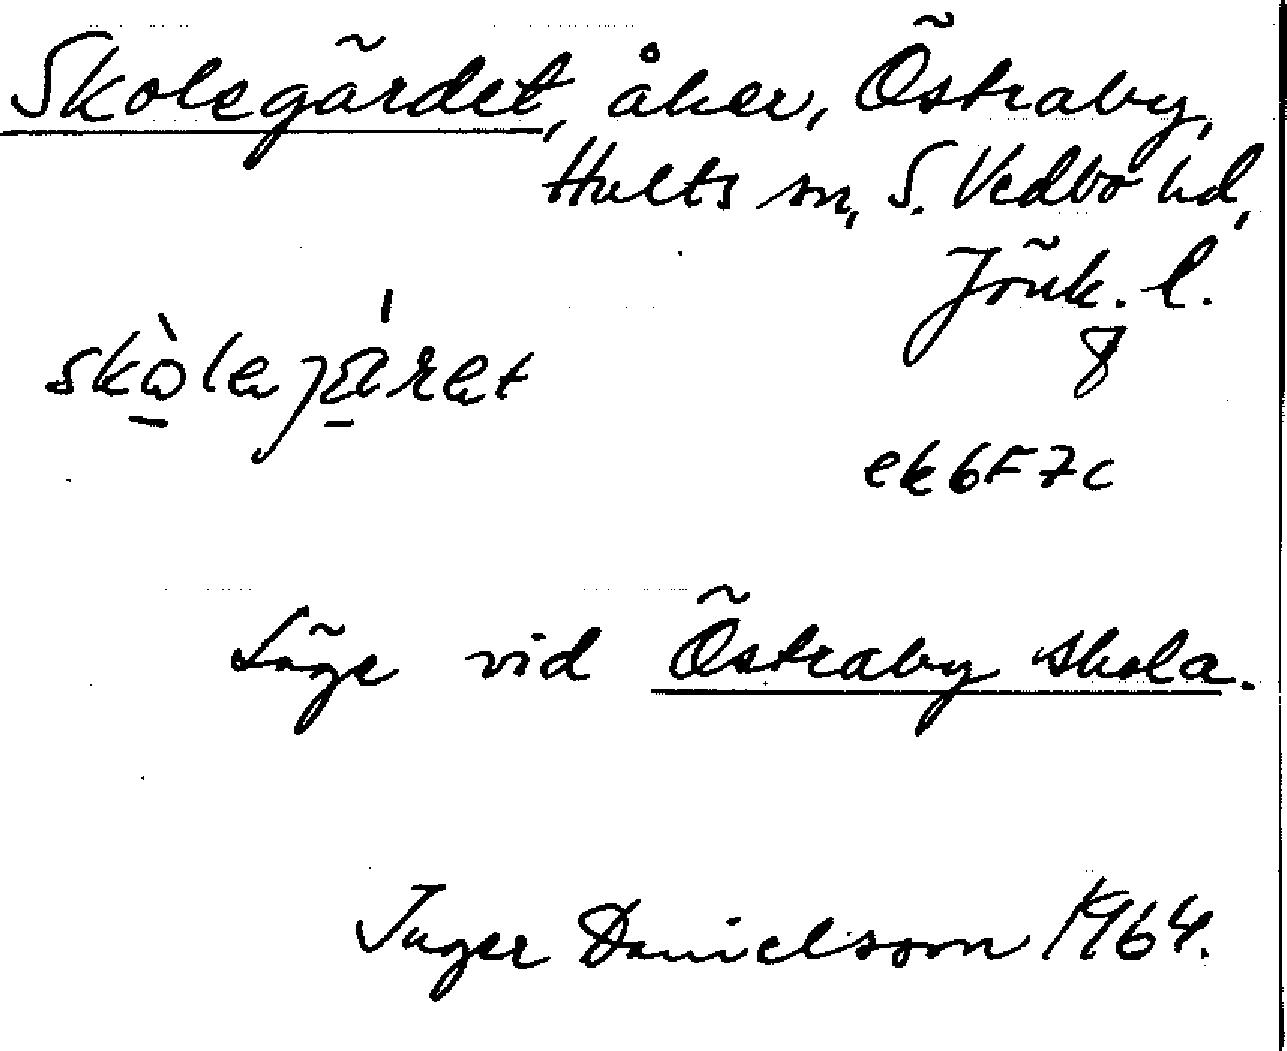 Skolegärdet, åker, Östraby,
Hults sn, S. Vedbo hd,
Jönk. l.
8
skòlejä̀ret
ek6F7c
Läge vid Östraby skola.
Inger Danielsson 1964.